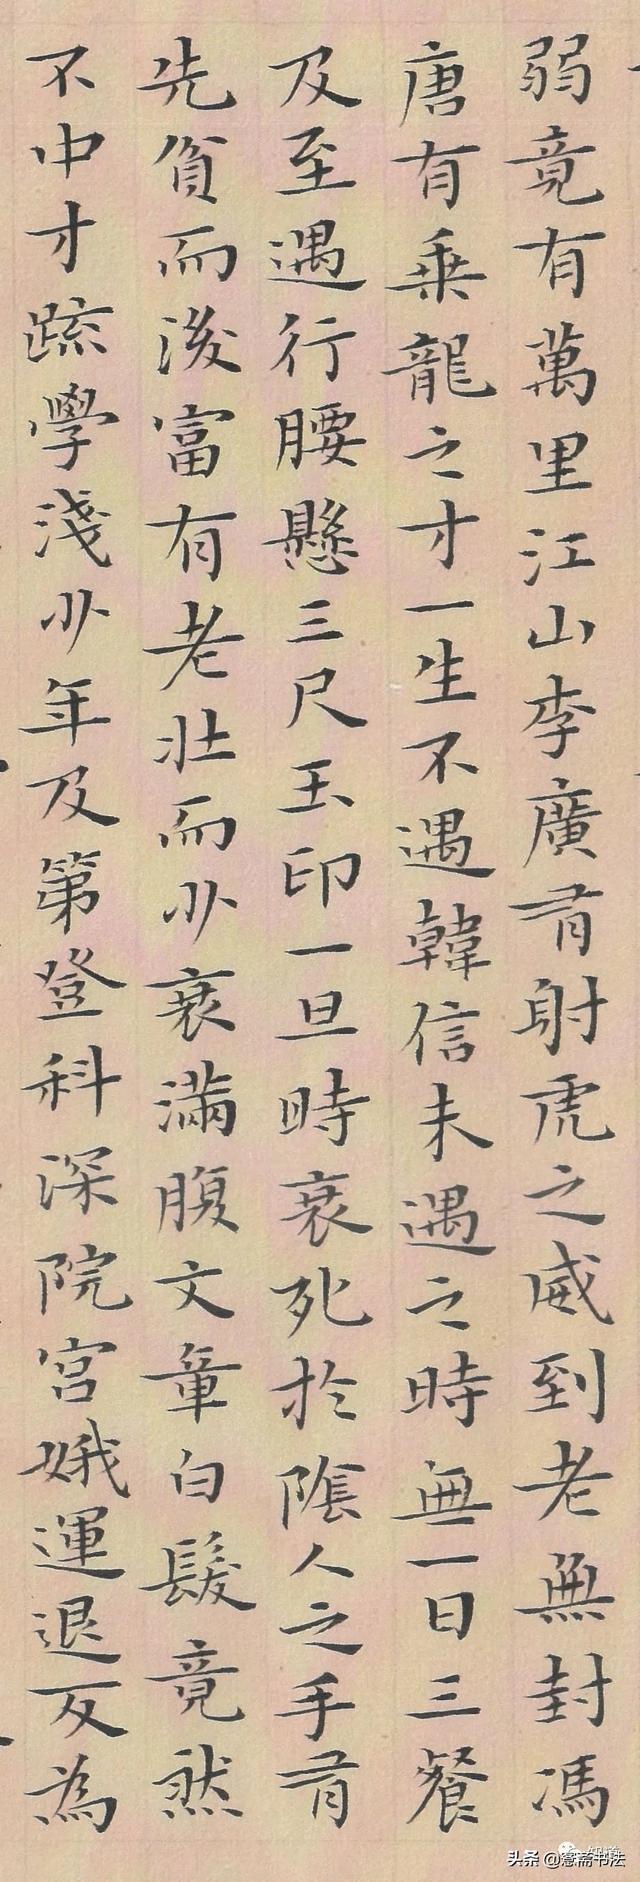 弱竟有萬里江山李廣有射虎之威到老無封馮
唐有乗龍之才一生不遇韓信未遇之時無一日三餐
及至遇行腰懸三尺玉印一旦時衰死於陰人之手有
先貧而後富有老壯而少衰滿腹文章白髮竟然
不中才疏學淺少年及第登科深院宮娥運退反為
头条 @慧斋书法